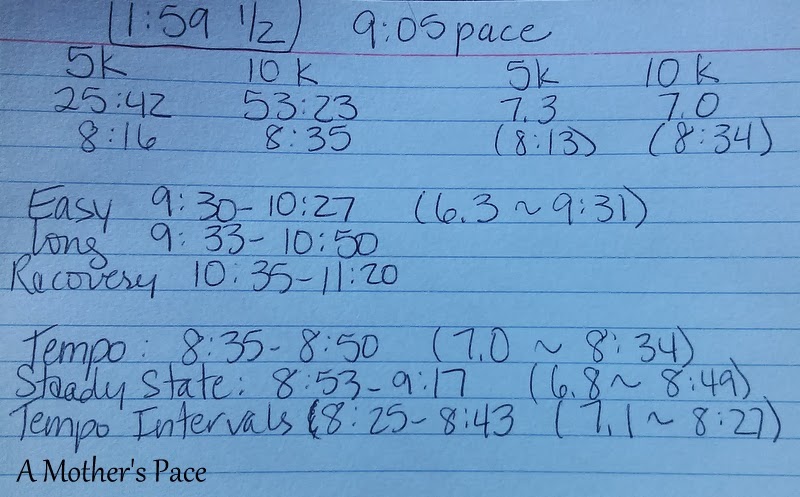 1:59 1/2 9:05 pace
5k 10k 5k 10k
25:42 53:23 7.3 7.0
8:16 8:35 (8:13) (8:34)
Easy 9:30-10:27 (6.3 ~ 9:31)
Long 9:33-10:50
Recovery 10:35-11:20
Tempo: 8:35-8:50 (7.0 ~ 8:34)
Steady State: 8:53-9:17 (6.8 ~ 8:49)
Tempo Intervals (8:25-8:43 (7.1 ~ 8:27)
A Mother's Pace